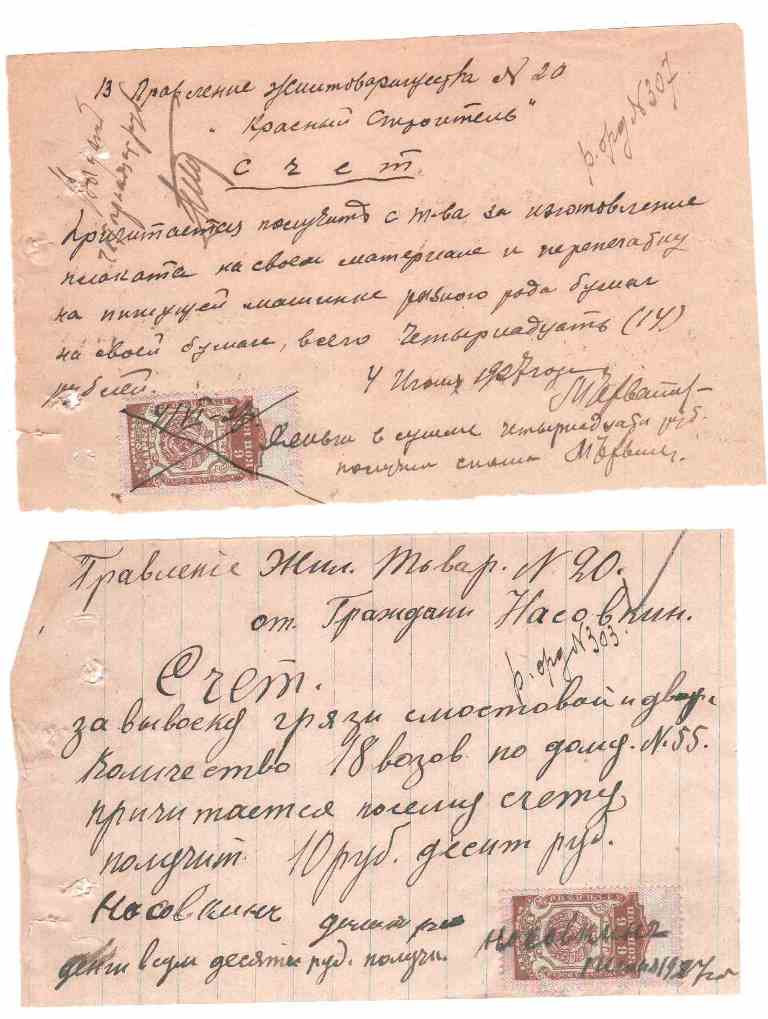 В Правление Жилтоварищества N 20
"Красный Строитель"
р. орд N 307
Счет
Причитается получить с т-ва за изготовление
плаката на своем материале и перепечатку
на пишущей машинке разного рода бумаг
на своей бумаге, всего Четырнадцать (14)
рублей.
4 Июня 1927 года
4/VI-27
Деньги в сумме четырнадцати руб.
получил сполна
Правленiе Жил. Товар. N 20.
от Граждани Насовкин.
р. орд N 303.
Счет.
за вывоску грязи смостовой и двор.
Количество 18 возов по дому. N. 55.
причитается поселиу счету
получит 10 руб. десит руб.
Насовкинъ
денги всум десяти руб. получи.
Насовкинъ
1927 го